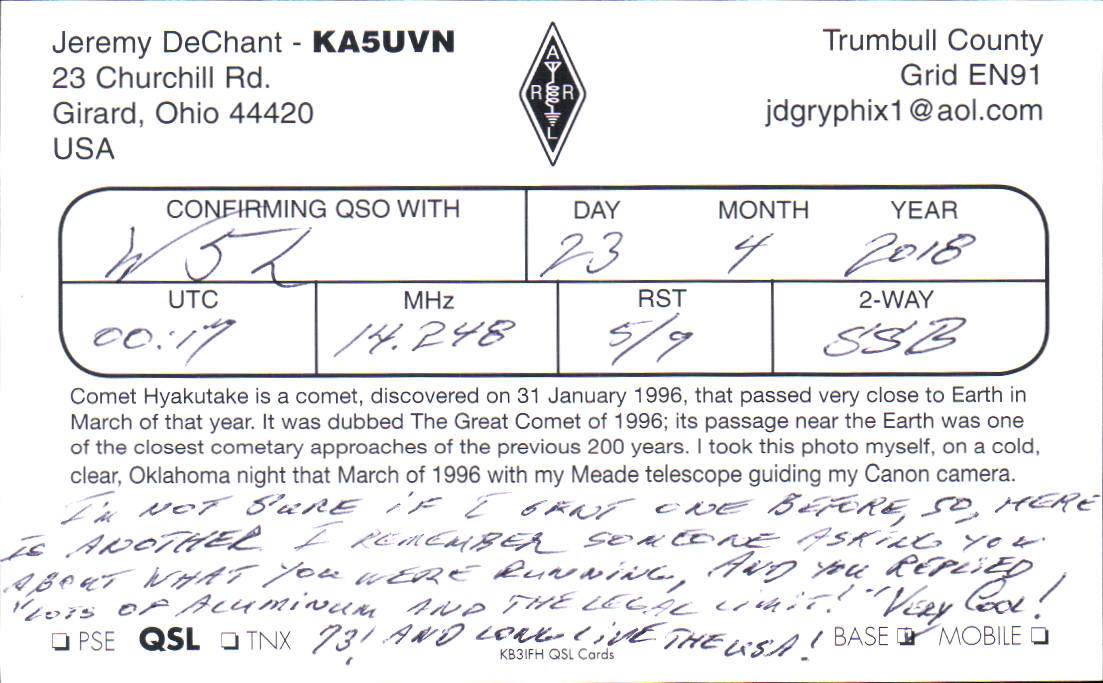 Jeremy DeChant - KA5UVN
23 Churchill Rd.
Girard, Ohio 44420
USA
A
R R
L
Trumbull County
Grid EN91
jdgryphix1@aol.com
CONFIRMING QSO WITH DAY MONTH YEAR
W5L 23 4 2018
UTC MHz RST 2-WAY
00:17 14.248 5/9 SSB
Comet Hyakutake is a comet, discovered on 31 January 1996, that passed very close to Earth in
March of that year. It was dubbed The Great Comet of 1996; its passage near the Earth was one
of the closest cometary approaches of the previous 200 years. I took this photo myself, on a cold,
clear, Oklahoma night that March of 1996 with my Meade telescope guiding my Canon camera.
I'm NOT SURE iF I SENT ONE BEFORE, SO, HERE
IS ANOTHER. I REMEMBER SOMEONE ASKING YOU
ABOUT WHAT YOU WERE RUNNING, AND YOU REPLIED
"LOTS OF ALUMINUM AND THE LEGAL LIMIT!" VERY COOL!
PSE QSL TNX 73! AND LONG LIVE THE USA! BASE MOBILE
KB3IFH QSL Cards